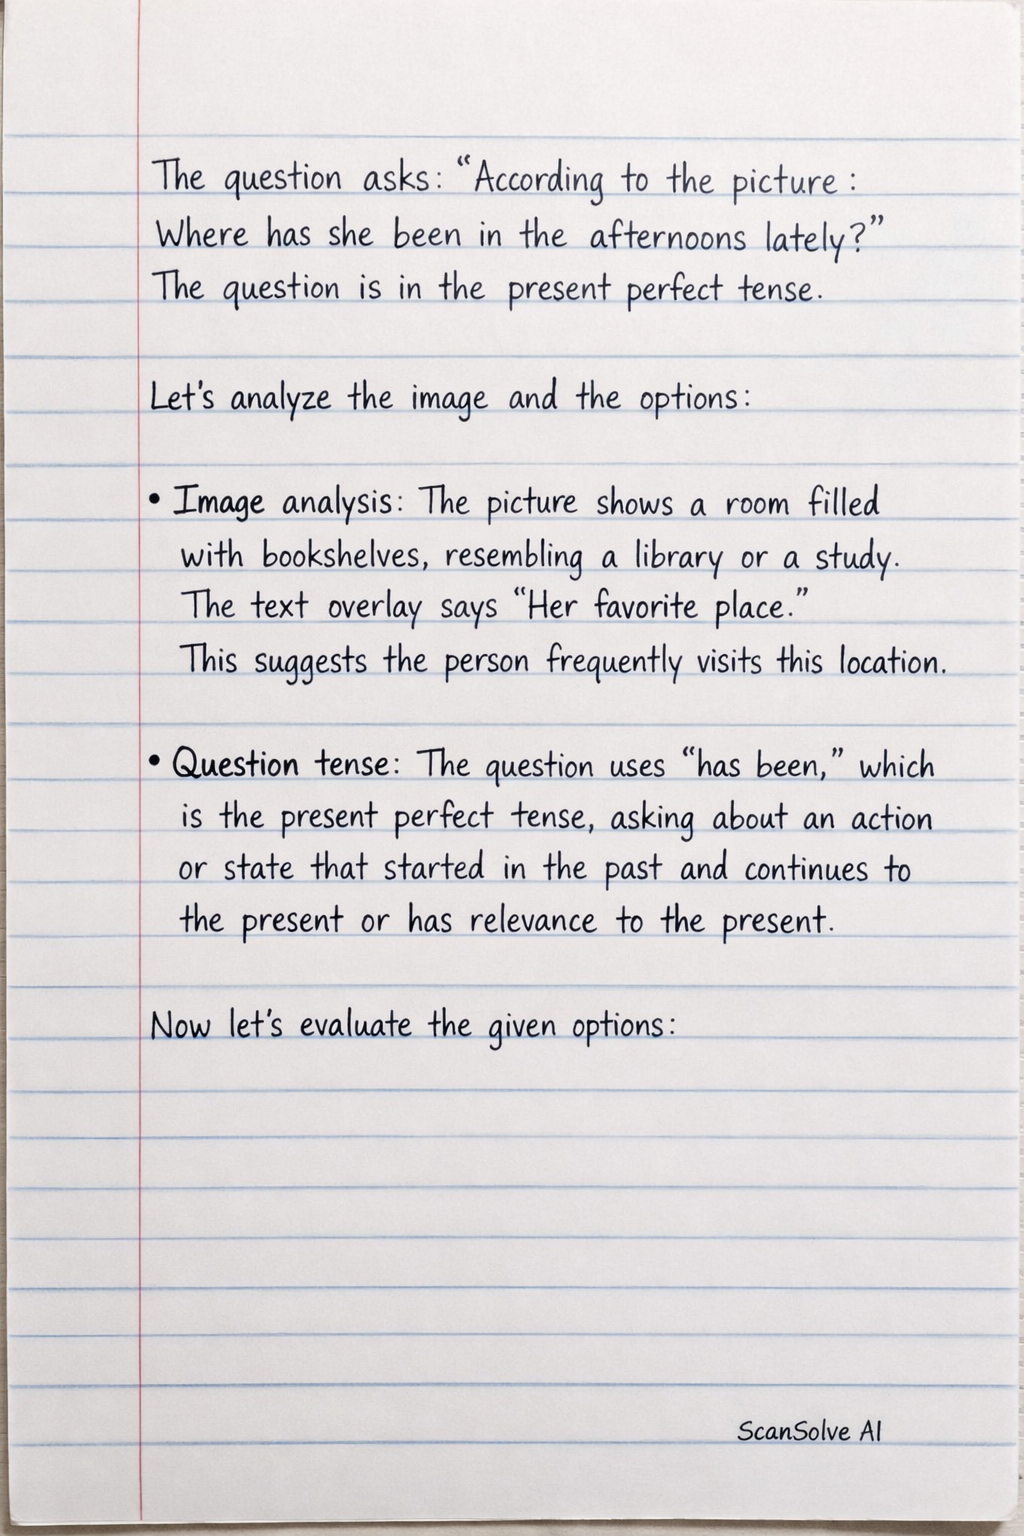 The question asks: “According to the picture :
Where has she been in the afternoons lately?”
The question is in the present perfect tense.
Let's analyze the image and the options:
• Image analysis: The picture shows a room filled
with bookshelves, resembling a library or a study.
The text overlay says “Her favorite place.”
This suggests the person frequently visits this location.
• Question tense: The question uses “has been,” which
is the present perfect tense, asking about an action
or state that started in the past and continues to
the present or has relevance to the present.
Now let's evaluate the given options:
ScanSolve AI